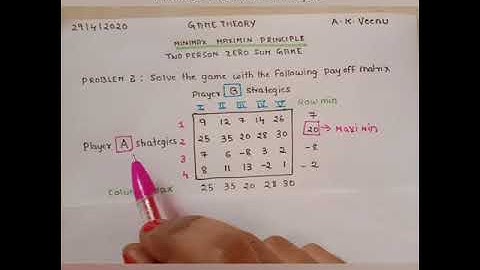 29/4/2020 GAME THEORY A. K. Veenu
MINIMAX MAXIMIN PRINCIPLE
TWO PERSON ZERO SUM GAME
PROBLEM 2: Solve the game with the following pay off matrix
Player B strategies
I II III IV V Row min
1 9 12 7 14 26 7
Player A strategies 2 25 35 20 28 30 20 → Maximin
3 7 6 -8 3 2 -8
4 8 11 13 -2 1 -2
max 25 35 20 28 30